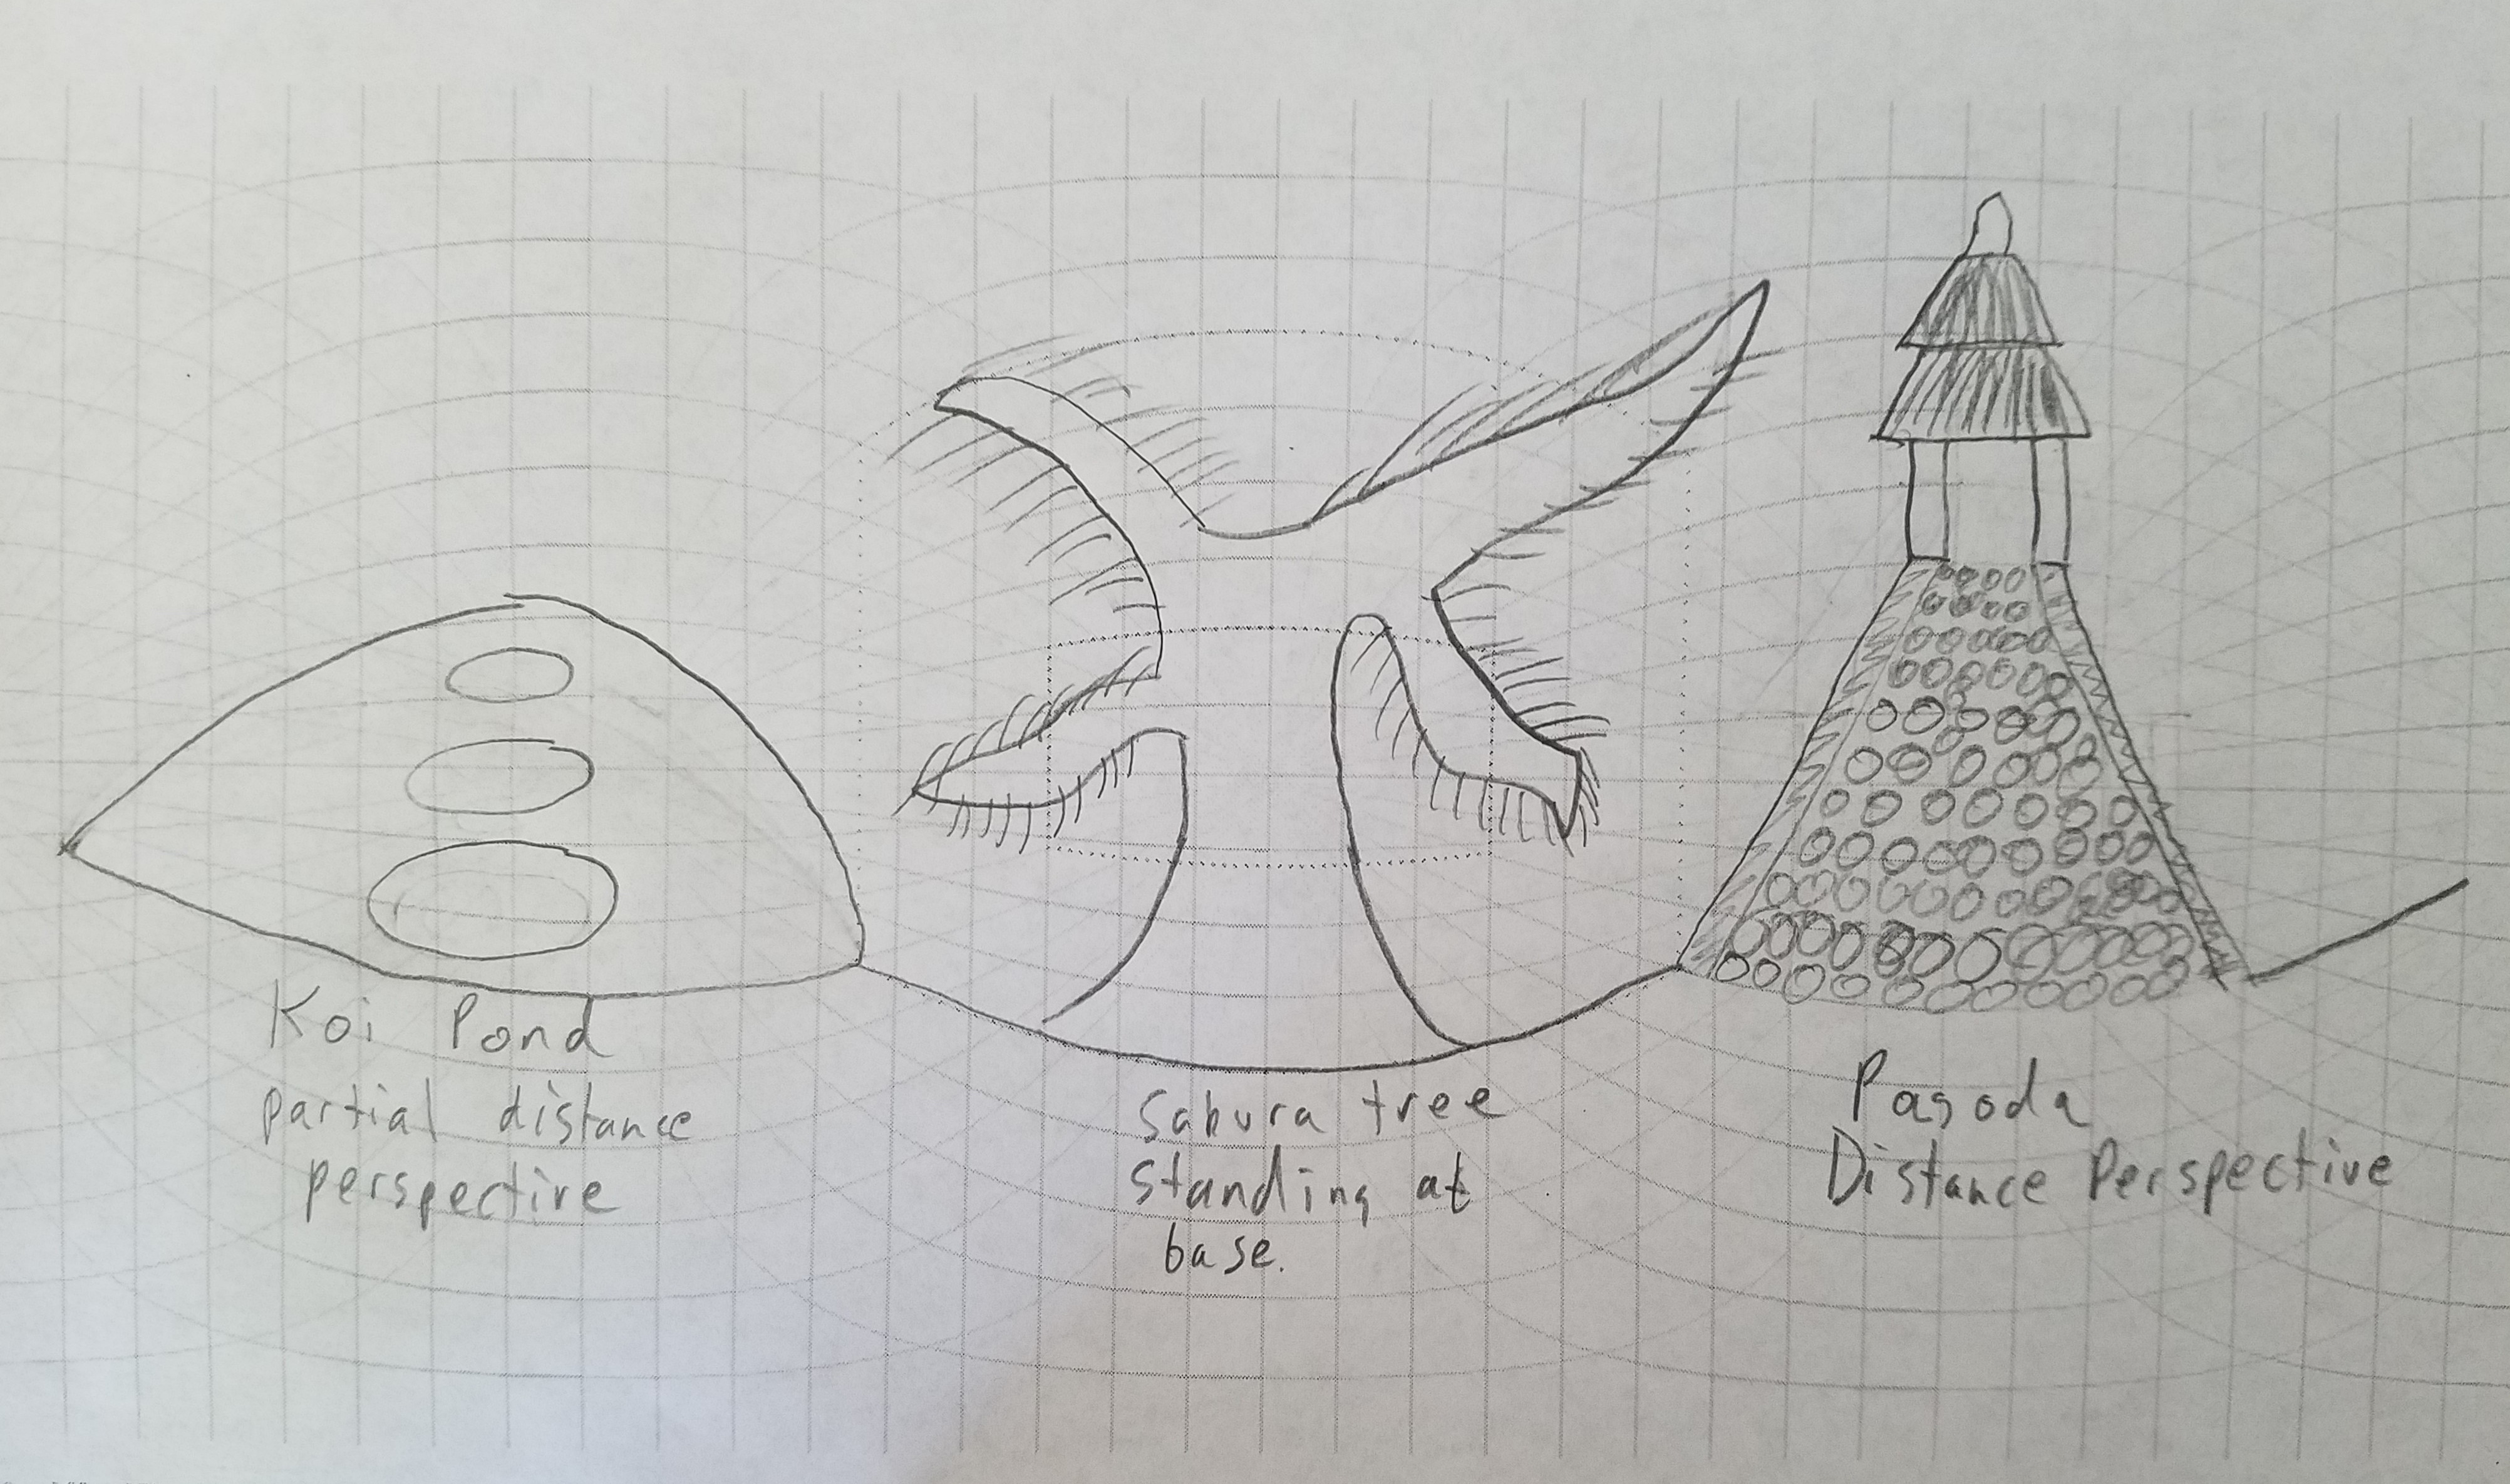 Koi Pond
partial distance
perspective
Sakura tree
standing at
base.
Pagoda
Distance Perspective